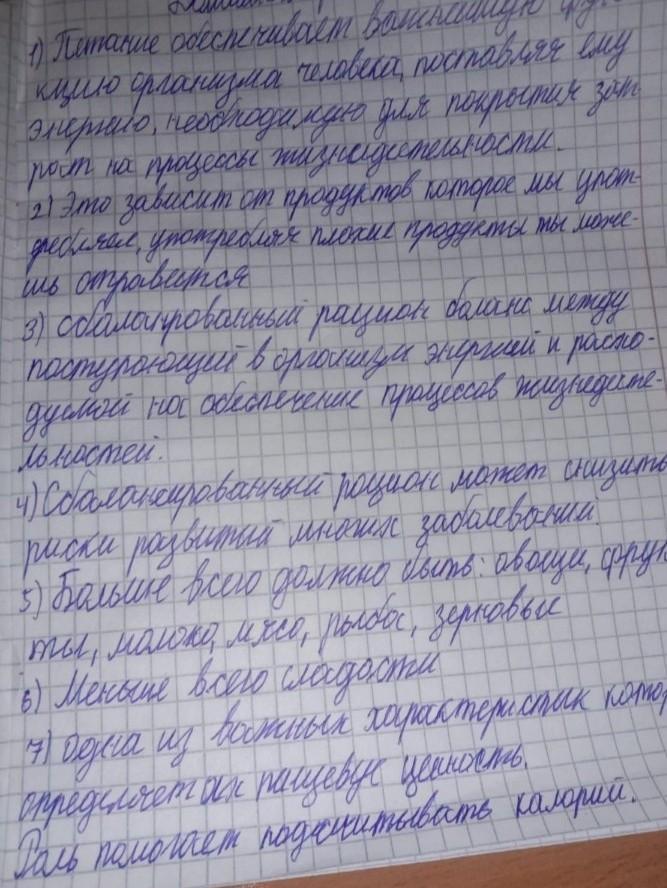 1) Питание обеспечивает важнейшую фун
кцию организма человека, поставляя ему
энергию, необходимую для покрытия зат
рат на процессы жизнедеятельности.
2) Это зависит от продуктов которое мы упот-
ребляем, употребляя плохие продукты ты може-
шь отравится
3) сбалансированный рацион баланс между
поступающей в организм энергией и расхо-
дуемой на обеспечение процессов жизнедеяте-
льностей.
4) Сбалансированный рацион может снизить
риски развитий многих заболеваний.
5) Больше всего должно быть: овощи, фрук
ты, молоко, мясо, рыба, зерновые
6) Меньше всего сладости
7) одна из важных характеристик котор
определяет их пищевую ценность.
Роль помогает подсчитывать калорий.